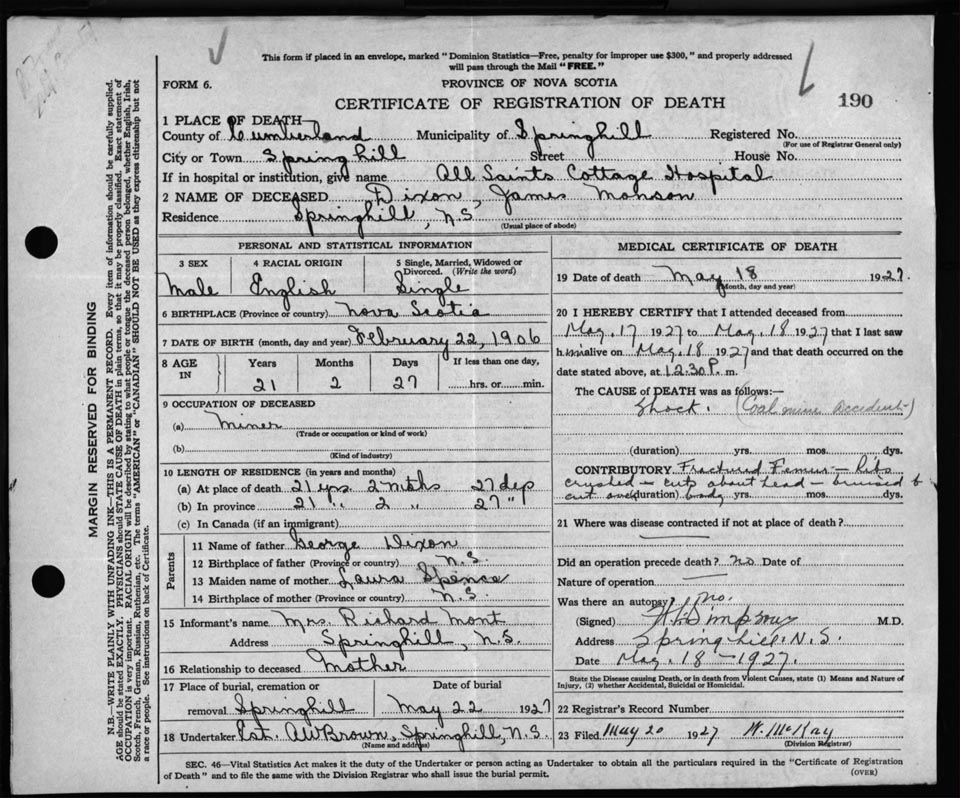 This form if placed in an envelope, marked "Dominion Statistics—Free, penalty for improper use $300," and properly addressed
will pass through the Mail "FREE."
FORM 6.
PROVINCE OF NOVA SCOTIA
CERTIFICATE OF REGISTRATION OF DEATH
190
1 PLACE OF DEATH—
County of Cumberland Municipality of Springhill Registered No.
(For use of Registrar General only)
City or Town Springhill Street House No.
If in hospital or institution, give name All Saints Cottage Hospital
2 NAME OF DECEASED Dixon, James Monson
Residence Springhill, N.S.
(Usual place of abode)
PERSONAL AND STATISTICAL INFORMATION
3 SEX 4 RACIAL ORIGIN 5 Single, Married, Widowed or Divorced. (Write the word)
Male English Single
6 BIRTHPLACE (Province or country) Nova Scotia
7 DATE OF BIRTH (month, day and year) February 22, 1906
8 AGE IN Years Months Days If less than one day,
21 2 27 hrs. or min.
9 OCCUPATION OF DECEASED
(a) Miner
(Trade or occupation or kind of work)
(b)
(Kind of industry)
10 LENGTH OF RESIDENCE (in years and months)
(a) At place of death 21 yrs 2 mths 27 dys
(b) In province 21 " 2 " 27 "
(c) In Canada (if an immigrant)
Parents
11 Name of father George Dixon
12 Birthplace of father (Province or country) N.S.
13 Maiden name of mother Laura Spence
14 Birthplace of mother (Province or country) N.S.
15 Informant's name Mrs. Richard Mont
Address Springhill, N.S.
16 Relationship to deceased Mother
17 Place of burial, cremation or removal Springhill Date of burial May 22 1927
18 Undertaker Est. AW Brown, Springhill, N.S.
(Name and address)
MEDICAL CERTIFICATE OF DEATH
19 Date of death May 18 1927.
(Month, day and year)
20 I HEREBY CERTIFY that I attended deceased from
May 17 1927 to May 18 1927 that I last saw
him alive on May 18 1927 and that death occurred on the
date stated above, at 12.30 P. m.
The CAUSE of DEATH was as follows:—
Shock. (Coal mine accident)
(duration) yrs. mos. dys.
CONTRIBUTORY Fractured Femur — ribs
crushed — cuts about head — bruised &
cut over body (duration) yrs. mos. dys.
21 Where was disease contracted if not at place of death?
Did an operation precede death? no Date of
Nature of operation
Was there an autopsy? no.
(Signed) M.D.
Address Springhill N.S.
Date May 18 – 1927.
State the Disease causing Death, or in death from Violent Causes, state (1) Means and Nature of
Injury, (2) whether Accidental, Suicidal or Homicidal.
22 Registrar's Record Number
23 Filed May 20 1927 W. McKay
(Division Registrar)
SEC. 46—Vital Statistics Act makes it the duty of the Undertaker or person acting as Undertaker to obtain all the particulars required in the "Certificate of Registration
of Death" and to file the same with the Division Registrar who shall issue the burial permit.
(OVER)
MARGIN RESERVED FOR BINDING
N.B.—WRITE PLAINLY WITH UNFADING INK—THIS IS A PERMANENT RECORD. Every item of information should be carefully supplied.
AGE should be stated EXACTLY. PHYSICIANS should STATE CAUSE OF DEATH in plain terms, so that it may be properly classified. Exact statement of
OCCUPATION is very important. RACIAL ORIGIN will be described by stating to what people or tongue the deceased person belonged, whether English, Irish,
Scotch, French, German, Russian, Ruthenian, etc. The terms "AMERICAN" or "CANADIAN" SHOULD NOT BE USED as they express citizenship but not
a race or people. See instructions on back of Certificate.